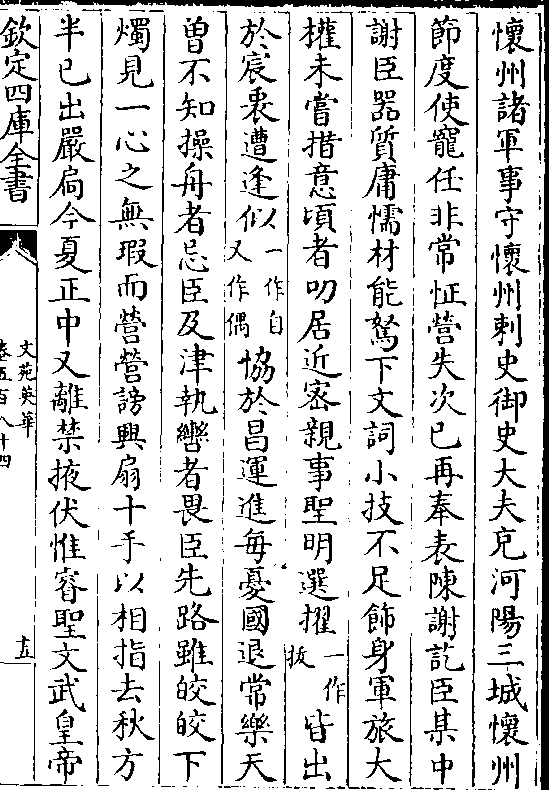 懷州諸軍事守懷州刺史御史大夫充河陽三城懷州
節度使寵任非常怔營失次已再奉表陳謝訖臣某中
謝臣器質庸懦材能駑下文詞小技不足飾身軍旅大
權未嘗措意頃者叨居近密親事聖明選擢一作拔皆出
於宸衷遭逢似以一作自又作偶協於昌運進每憂國退常樂天
曽不知操舟者忌臣及津執轡者畏臣先路雖皎皎下
燭見一心之無瑕而營營謗興扇十手以相指去秋方
半已出嚴扃今夏正中又離禁掖伏惟睿聖文武皇帝
欽定四庫全書
文苑英華
卷五百八十四
十五